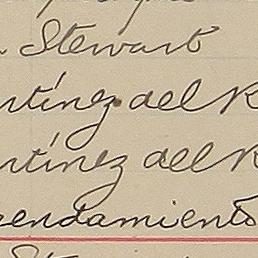 Stewart
rtínez del R
rtínez del R
rendamiento